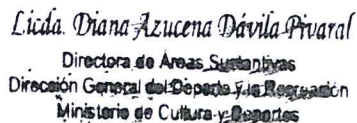 Licda. Diana Azucena Dávila Pivaral
Directora de Áreas Sustantivas
Dirección General del Deporte y la Recreación
Ministerio de Cultura y Deportes